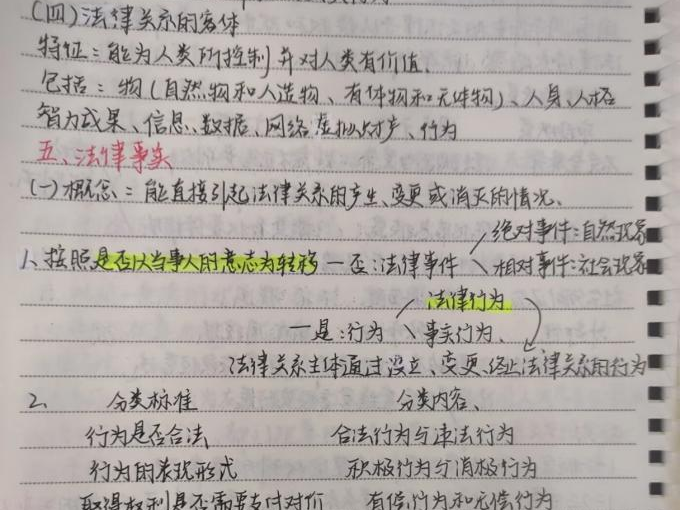 (四)法律关系的客体
特征:能为人类所控制并对人类有价值。
包括:物(自然物和人造物、有体物和无体物)、人身、人格
智力成果、信息、数据、网络虚拟财产、行为
五、法律事实
(一)概念:能直接引起法律关系的产生、变更或消灭的情况。
绝对事件:自然现象
1、按照是否以当事人的意志为转移 — 否:法律事件 相对事件:社会现象
法律行为
— 是:行为 事实行为、
法律关系主体通过设立、变更、终止法律关系的行为
2、 分类标准 分类内容、
行为是否合法 合法行为与违法行为
行为的表现形式 积极行为与消极行为
取得权利是否需要支付对价 有偿行为和无偿行为